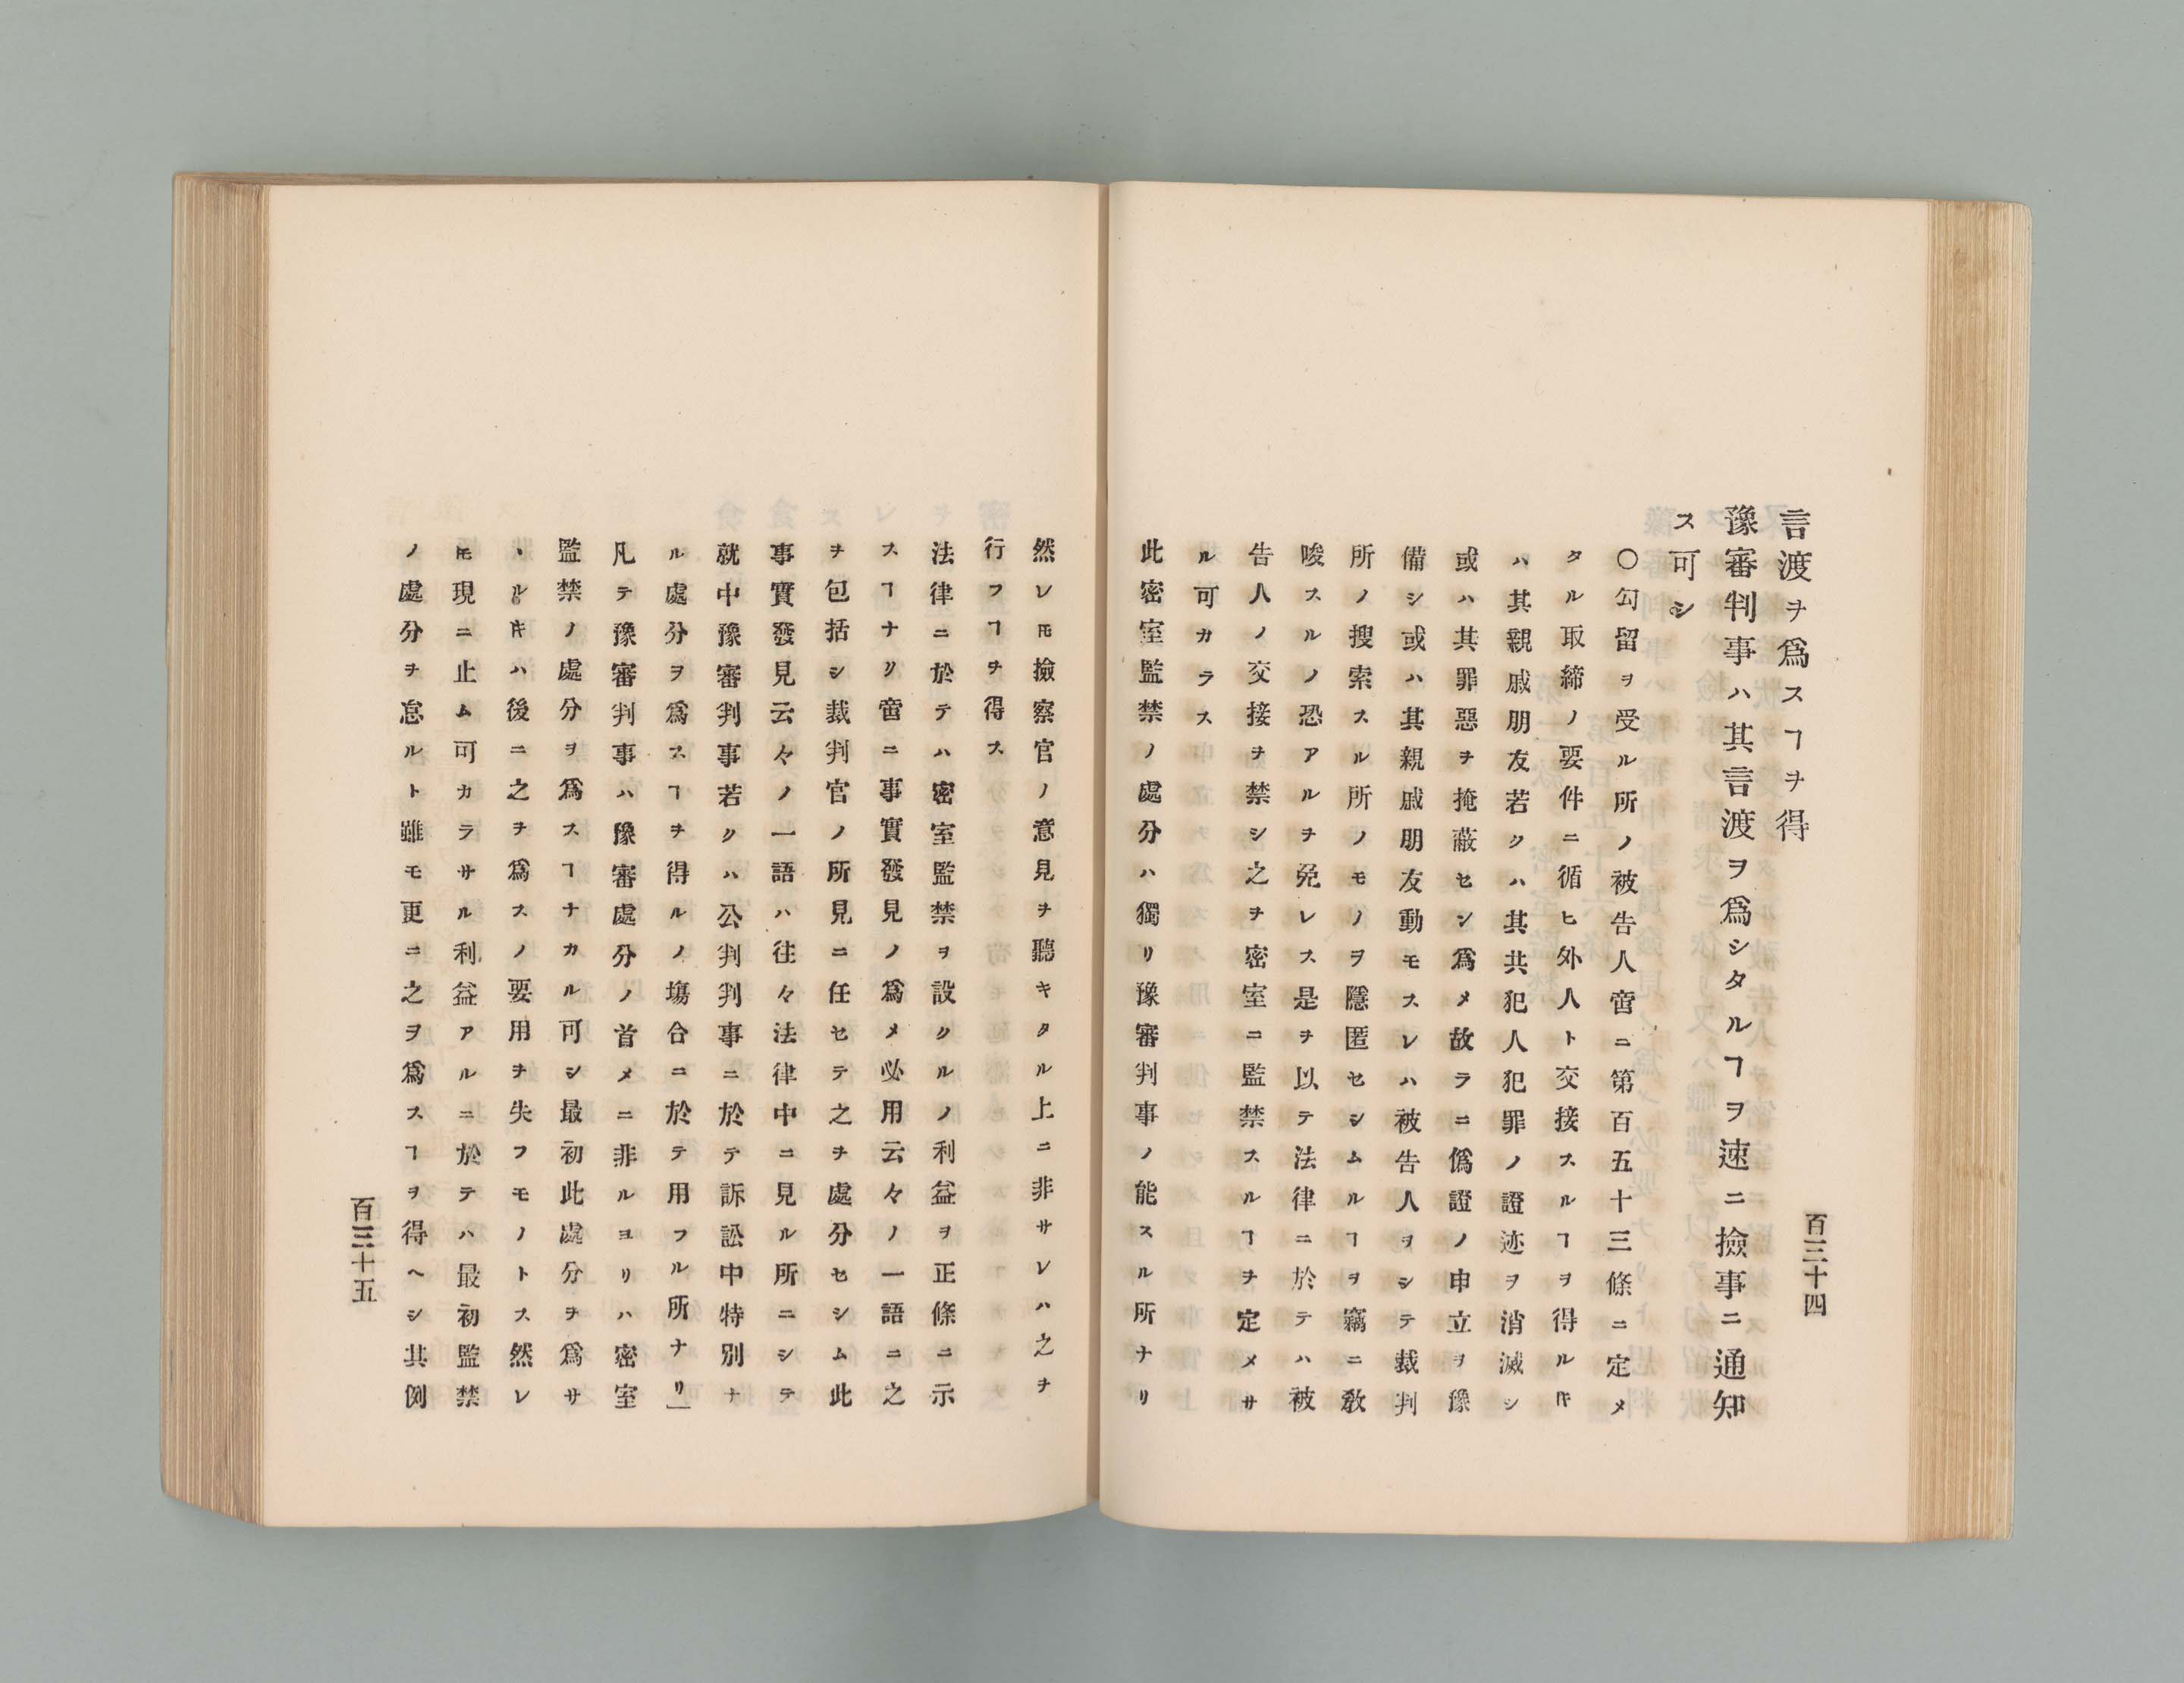 百三十四
言渡ヲ爲スヿヲ得
豫審判事ハ其言渡ヲ爲シタルヿヲ速ニ撿事ニ通知
ス可シ
〇勾留ヲ受ル所ノ被告人啻ニ第百五十三條ニ定メ
タル取締ノ要件ニ循ヒ外人ト交接スルヿヲ得ルキ
ハ其親戚朋友若クハ其共犯人犯罪ノ證迹ヲ消滅シ
或ハ其罪惡ヲ掩蔽セシ爲メ故ラニ僞證ノ申立ヲ豫
備シ或ハ其親戚朋友動モスレハ被告人ヲシテ裁判
所ノ搜索スル所ノモノヲ隱匿セシムルヿヲ竊ニ敎
唆スルノ恐アルヲ免レス是ヲ以テ法律ニ於テハ被
告人ノ交接ヲ禁シ之ヲ密室ニ監禁スルヿヲ定メサ
ル可カラス
此密室監禁ノ處分ハ獨リ豫審判事ノ能スル所ナリ
然レ𪜈撿察官ノ意見ヲ聽キタル上ニ非サレハ之ヲ
行フヿヲ得ス
法律ニ於テハ密室監禁ヲ設クルノ利益ヲ正條ニ示
スヿナリ啻ニ事實發見ノ爲メ必用云々ノ一語ニ之
ヲ包括シ裁判官ノ所見ニ任セテ之ヲ處分セシム此
事實發見云々ノ一語ハ往々法律中ニ見ル所ニシテ
就中豫審判事若クハ公判判事ニ於テ訴訟中特別ナ
ル處分ヲ爲スヿヲ得ルノ塲合ニ於テ用フル所ナリ」
凡テ豫審判事ハ豫審處分ノ首メニ非ルヨリハ密室
監禁ノ處分ヲ爲スヿナカル可シ最初此處分ヲ爲サ
ヽルキハ後ニ之ヲ爲スノ要用ヲ失フモノトス然レ
𪜈現ニ止ム可カラサル利益アルニ於テハ最初監禁
ノ處分ヲ怠ルト雖モ更ニ之ヲ爲スヿヲ得ヘシ其例
百三十五